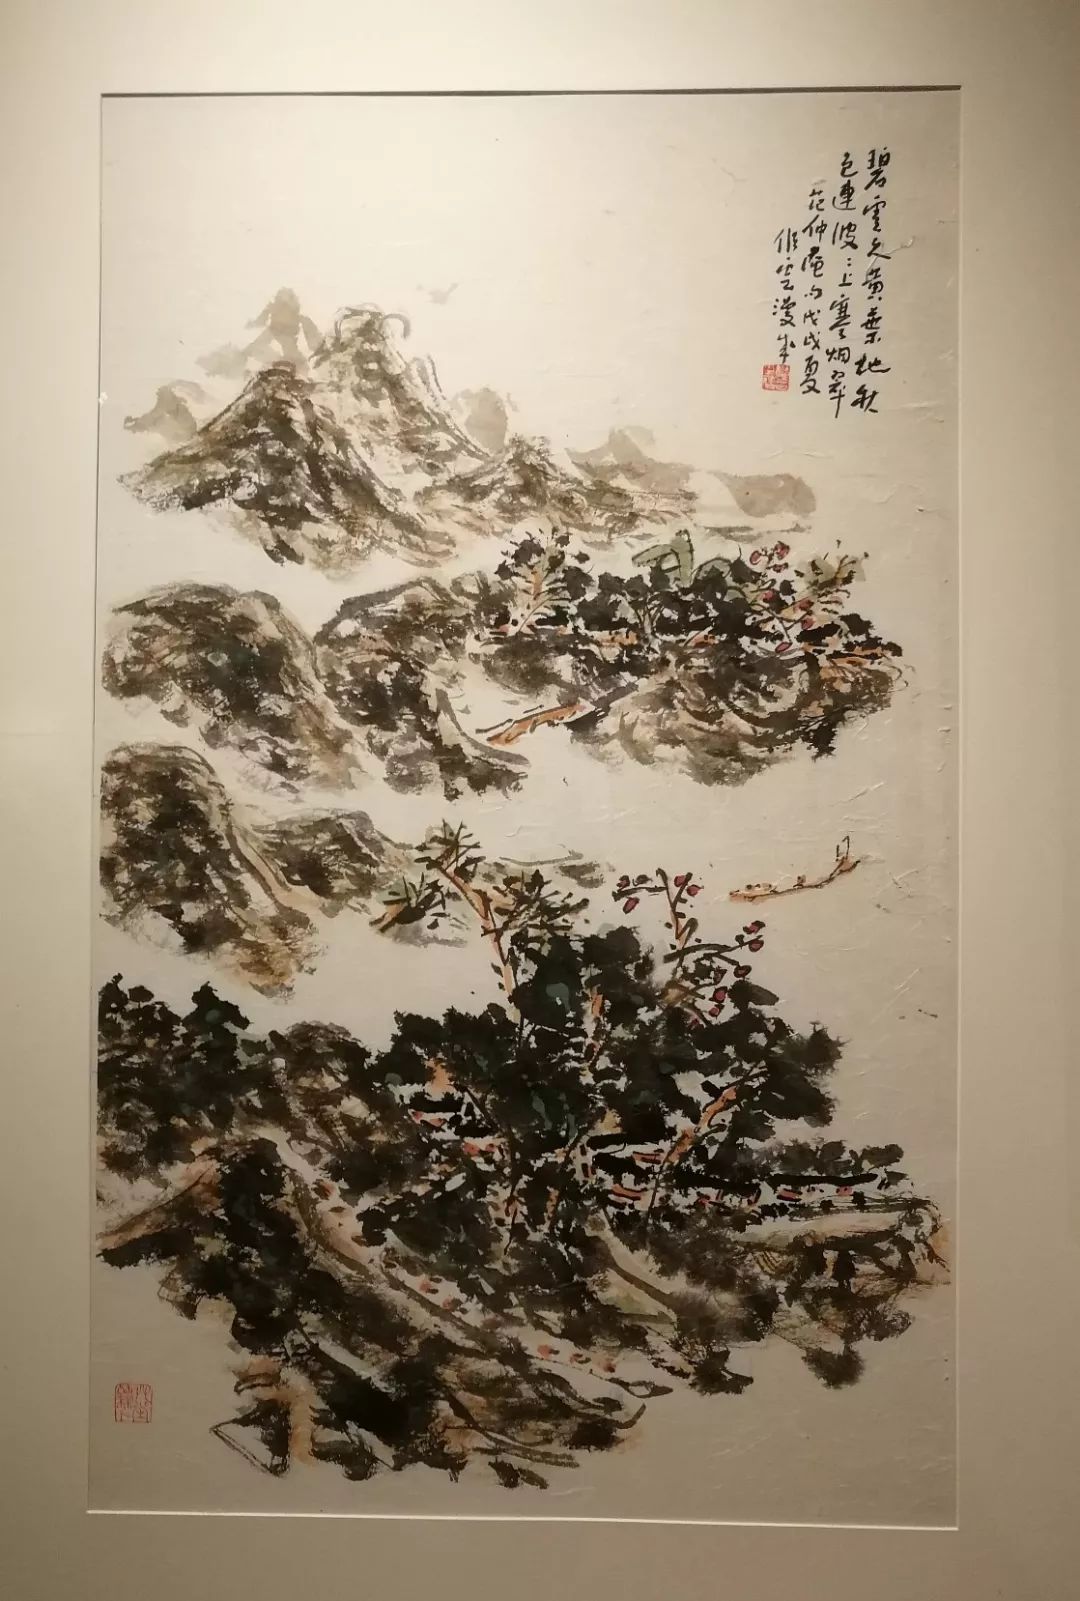 碧雲天黄葉地秋
色連波〻上寒烟翠
范仲淹句戊戌夏
作雲漫成